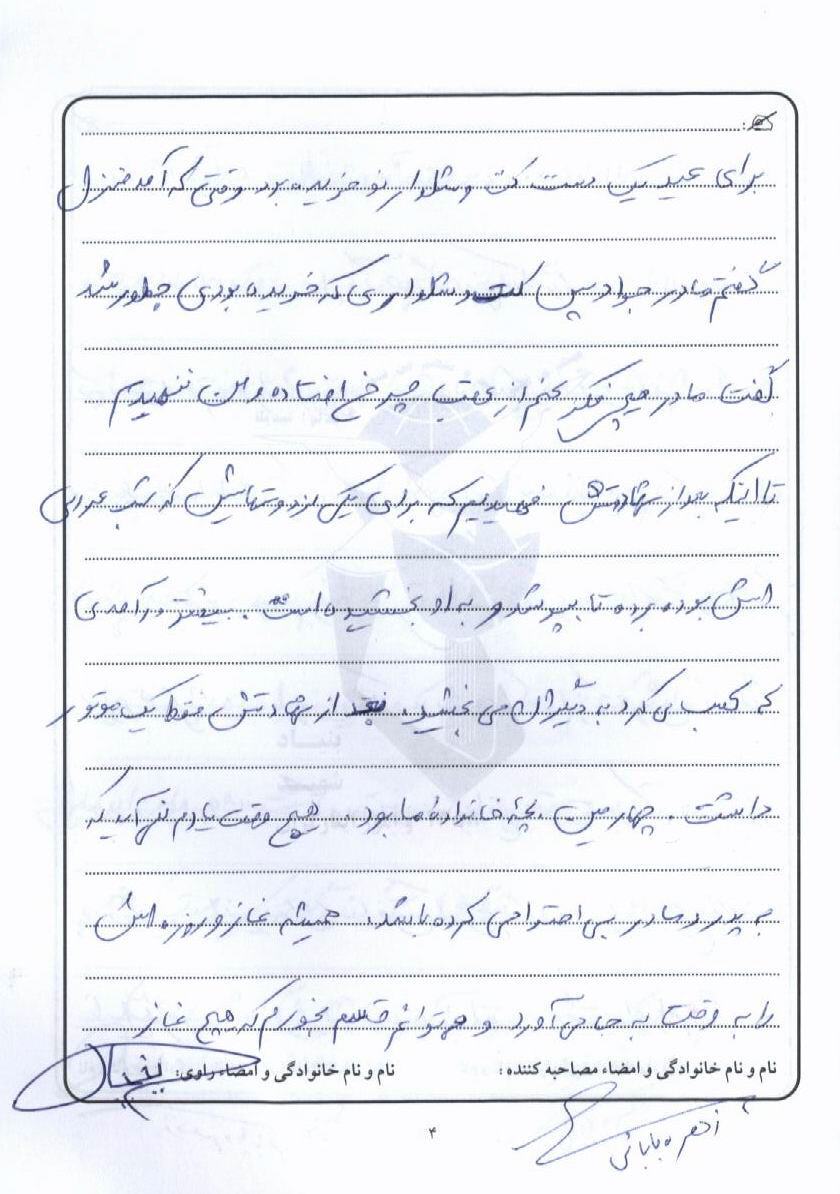 برای عید یک دست کت و شلوار نو خریده بود وقتی که آمد منزل
گفتم مادر جواد پس کت و شلواری که خریده بودی چطور شد
گفت مادر هیچی فکر کنم از عقب چرخ افتاده و من نفهمیدم
تا اینکه بعد از شهادتش فهمیدیم که برای یکی از دوستهایش که شب عروسی
اش بوده برده تا بپوشد و به او بخشیده است. بیشتر درآمدی
که کسب می کرد به دیگران می بخشید. بعد از شهادتش فقط یک موتور
داشت. چهارمین بچه خانواده ما بود. هیچ وقت یادم نمی آید که
به پدر و مادر بی احترامی کرده باشد. همیشه نماز و روزه اش
را به وقت به جا می آورد و می توانم قسم بخورم که هیچ نماز
نام و نام خانوادگی و امضاء مصاحبه کننده : نام و نام خانوادگی و امضاء راوی:
۴